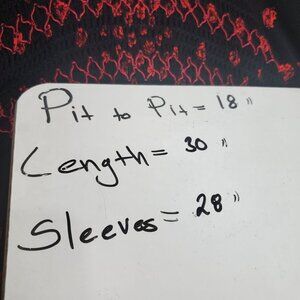 Pit to Pit = 18"
Length = 30"
Sleeves = 28"